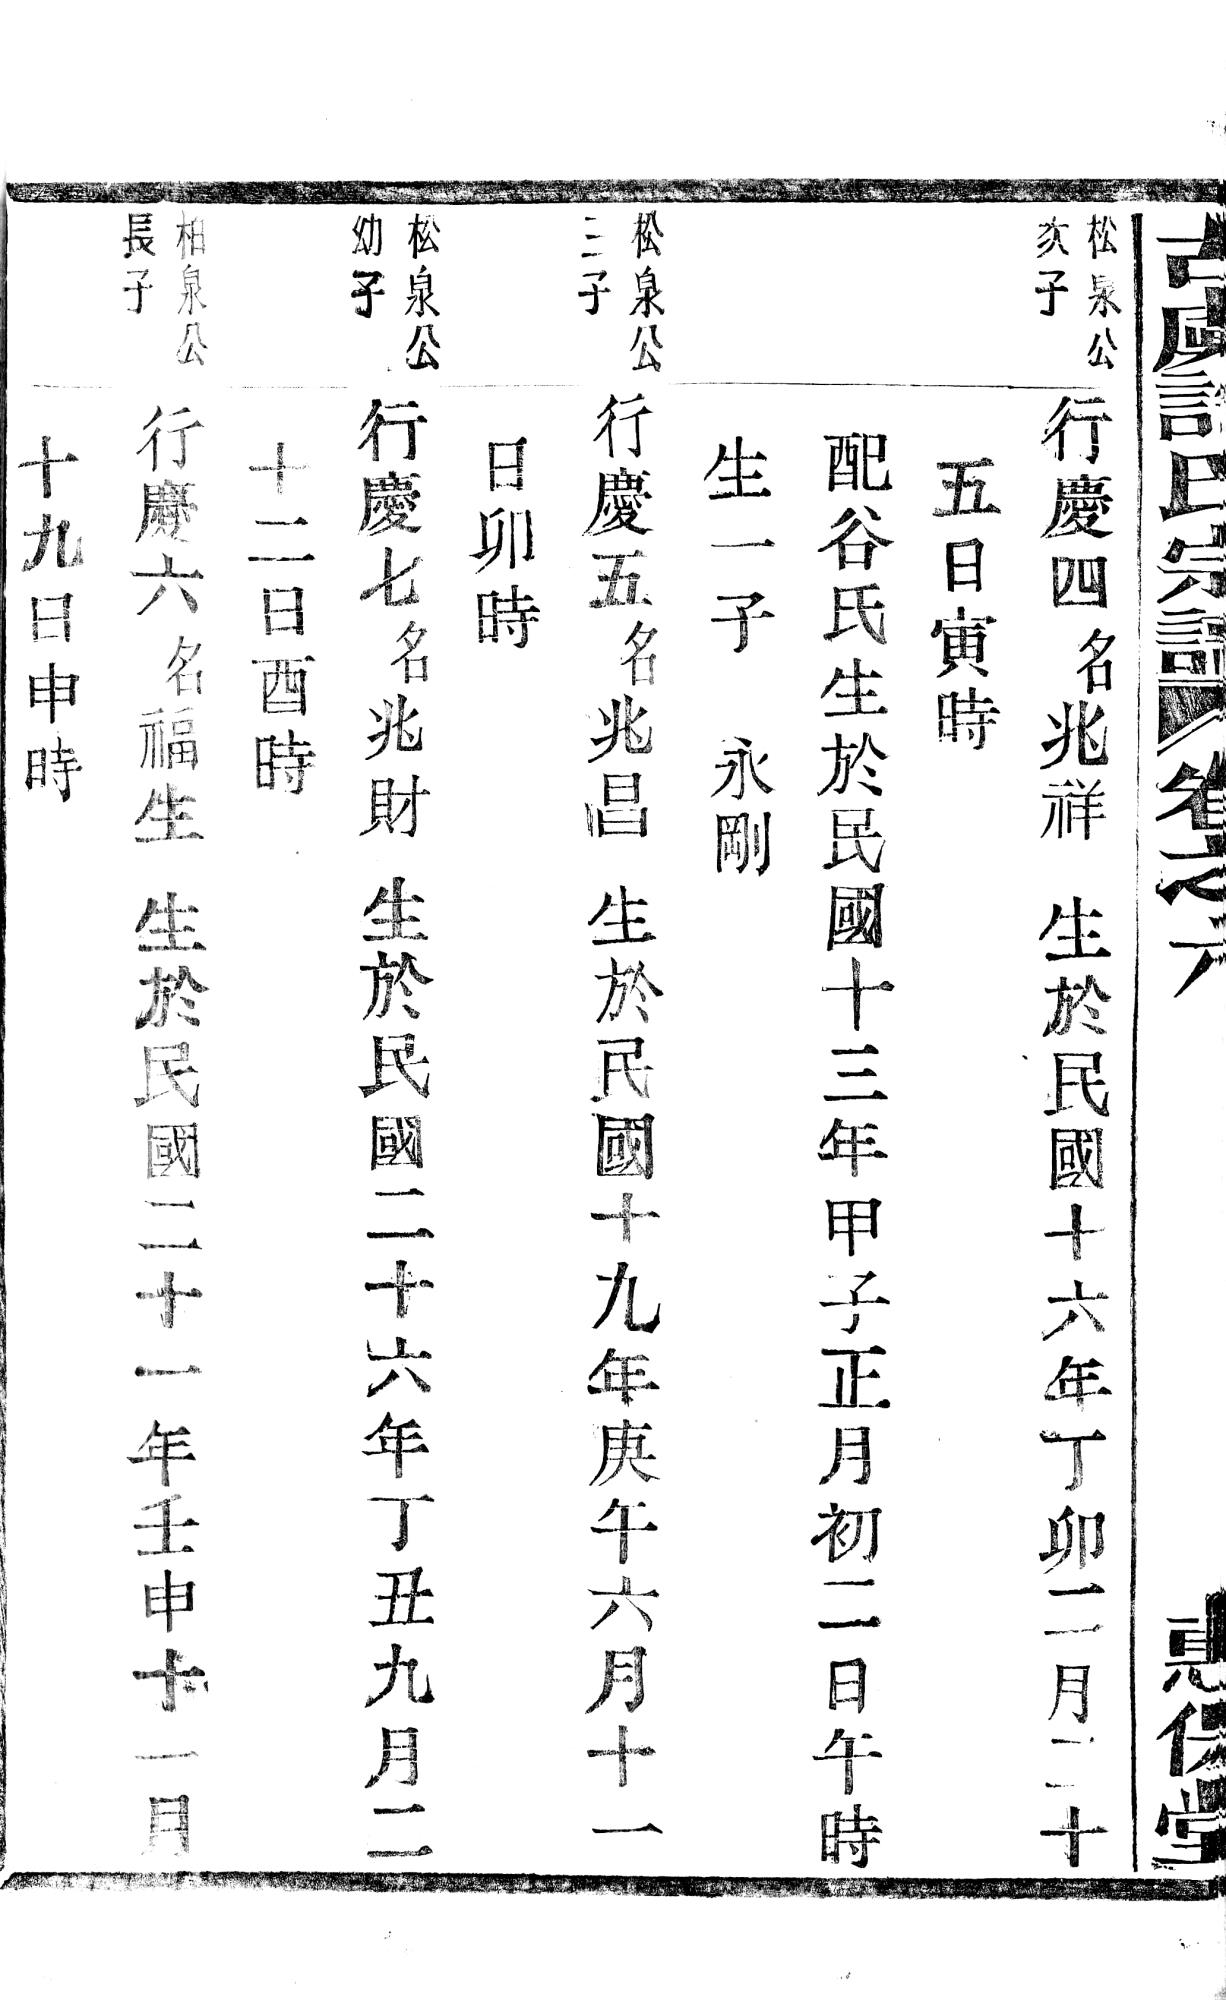 宗譜 卷之六
堂
松泉公
次子
行慶四名兆祥 生於民國十六年丁卯二月二十
五日寅時
配谷氏生於民國十三年甲子正月初二日午時
生一子 永剛
松泉公
三子
行慶五名兆昌 生於民國十九年庚午六月十一
日卯時
松泉公
幼子
行慶七名兆財 生於民國二十六年丁丑九月二
十二日酉時
柏泉公
長子
行慶六名福生 生於民國二十一年壬申十一月
十九日申時